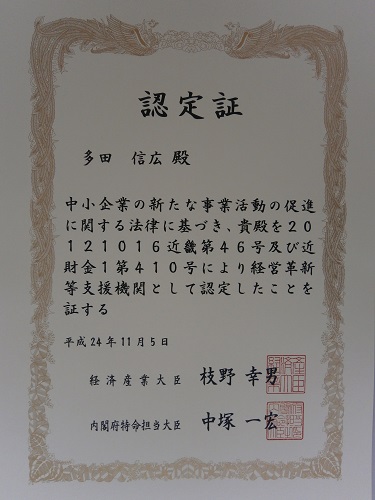 認定証
多田 信広 殿
中小企業の新たな事業活動の促進
に関する法律に基づき、貴殿を20
121016近畿第46号及び近
財金1第410号により経営革新
等支援機関として認定したことを
証する
平成24年11月5日
経済産業大臣 枝野 幸男
内閣府特命担当大臣 中塚 一宏